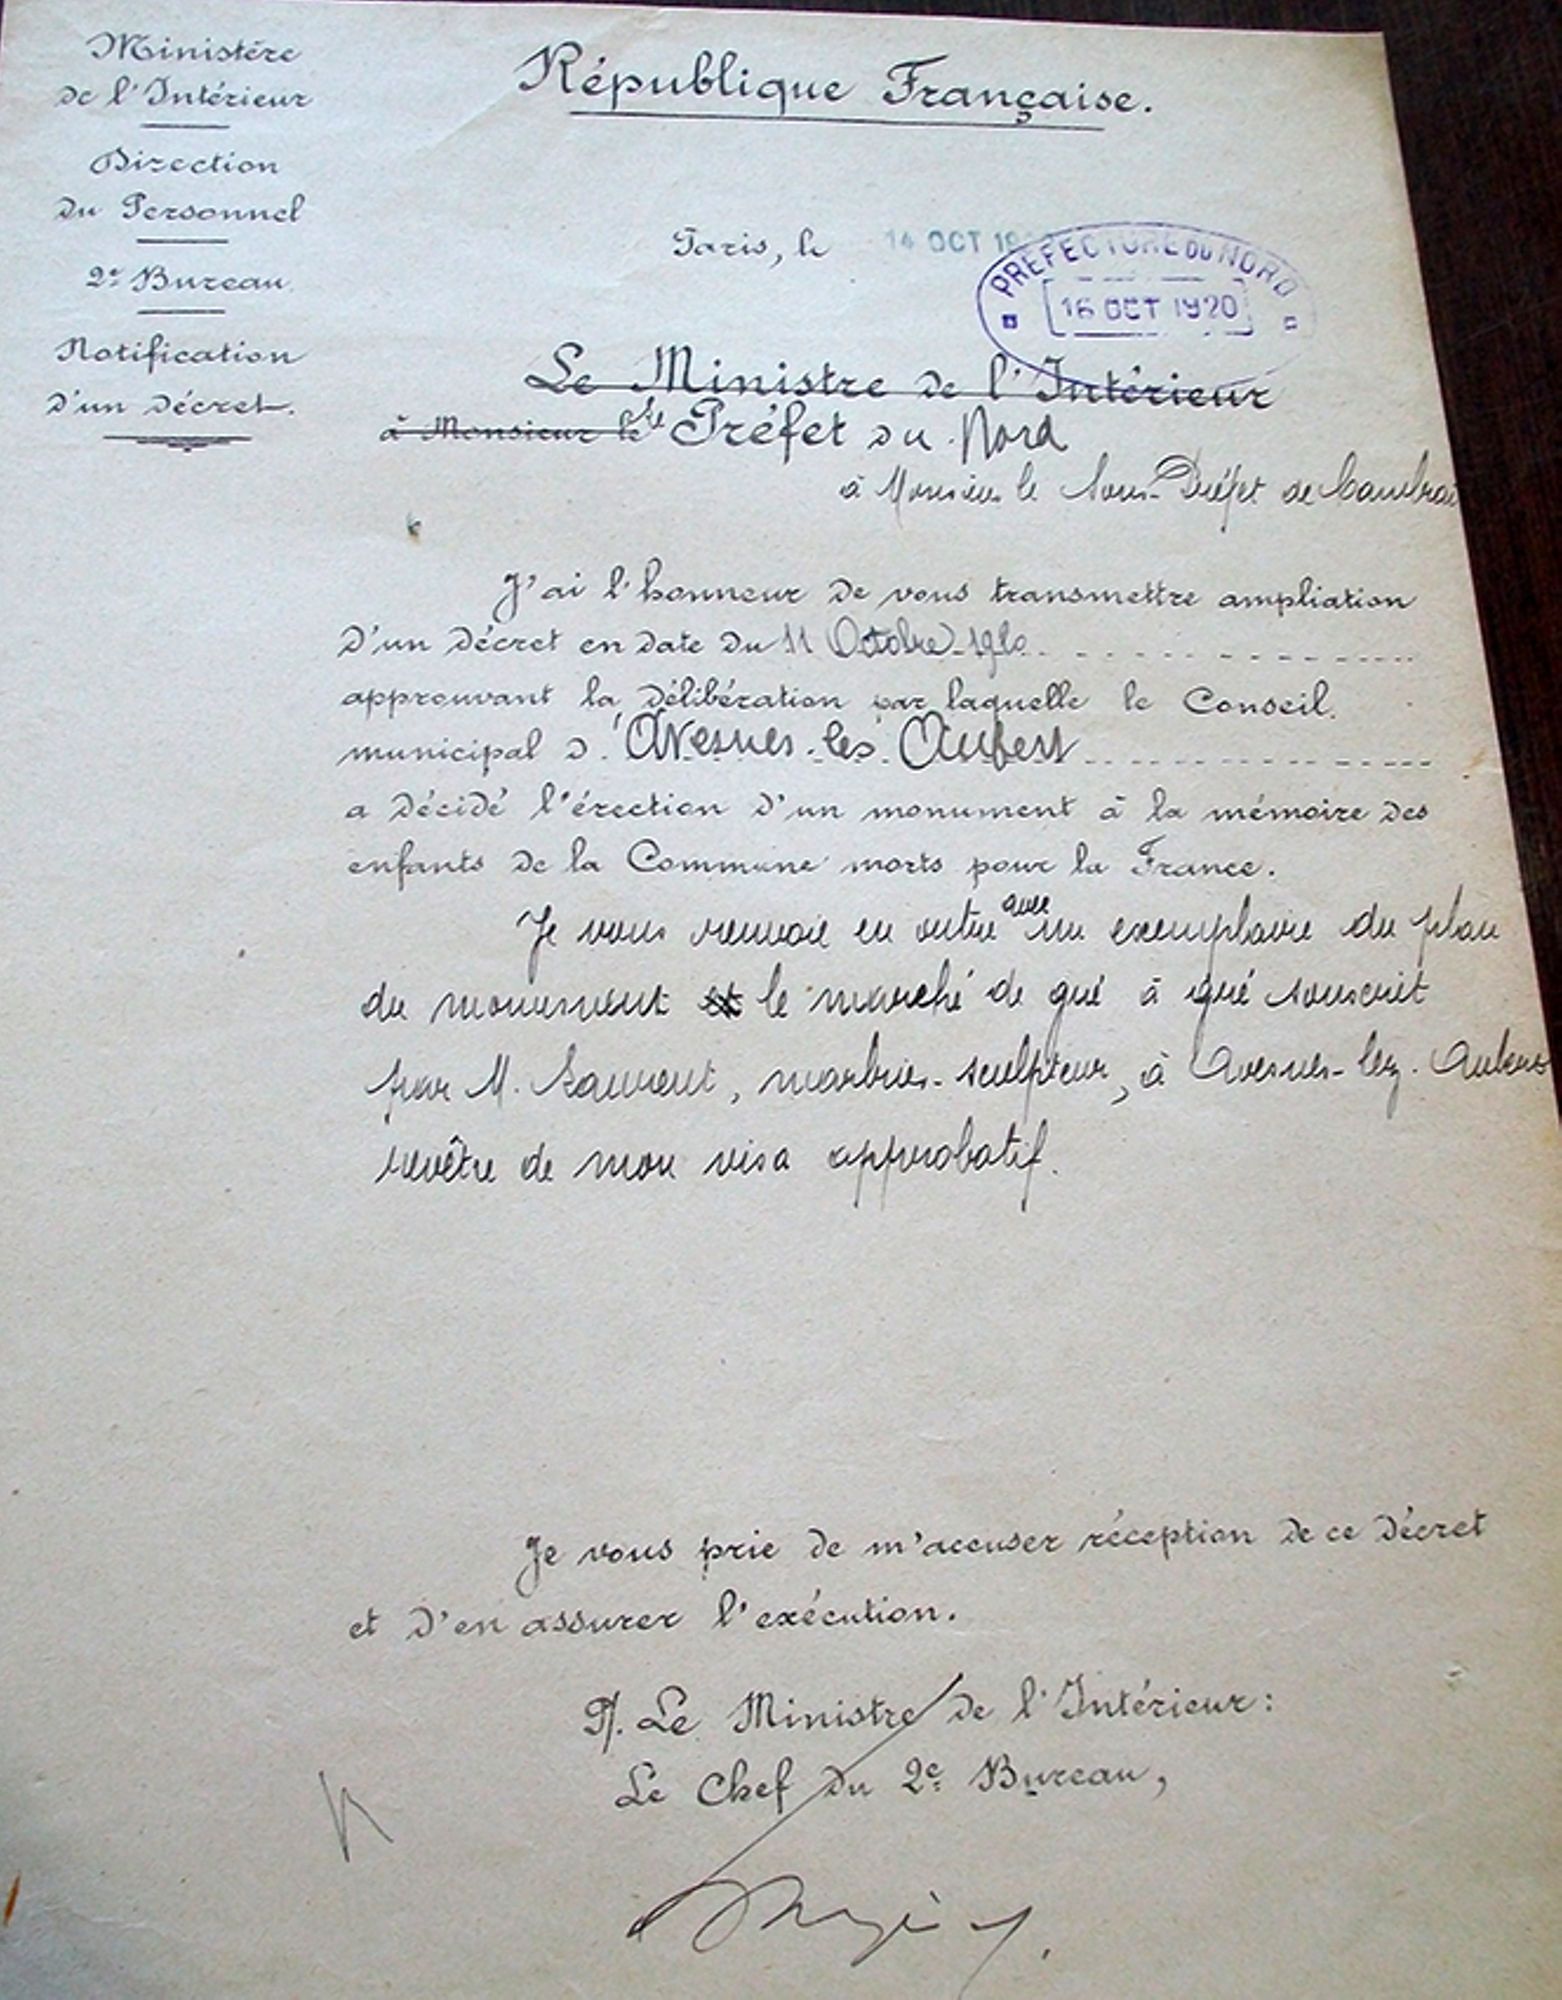 Ministère
de l'Intérieur
Direction
du Personnel
2e Bureau
Notification
d'un décret.
République Française.
Paris, le 14 OCT
PRÉFECTURE DU NORD
16 OCT 1920
Le Ministre de l'Intérieur
à Monsieur le Le Préfet du Nord
à Monsieur le Sous-Préfet de Cambrai
J'ai l'honneur de vous transmettre ampliation
d'un décret en date du 11 Octobre 1920
approuvant la délibération par laquelle le Conseil
municipal d'Avesnes-les-Aubert
a décidé l'érection d'un monument à la mémoire des
enfants de la Commune morts pour la France.
Je vous renvoie en outre avec un exemplaire du plan
du monument et le marché de gré à gré souscrit
par M. Laurent, marbrier-sculpteur, à Avesnes-lez-Aubert
revêtu de mon visa approbatif.
Je vous prie de m'accuser réception de ce décret
et d'en assurer l'exécution.
P. Le Ministre de l'Intérieur:
Le Chef du 2e Bureau,